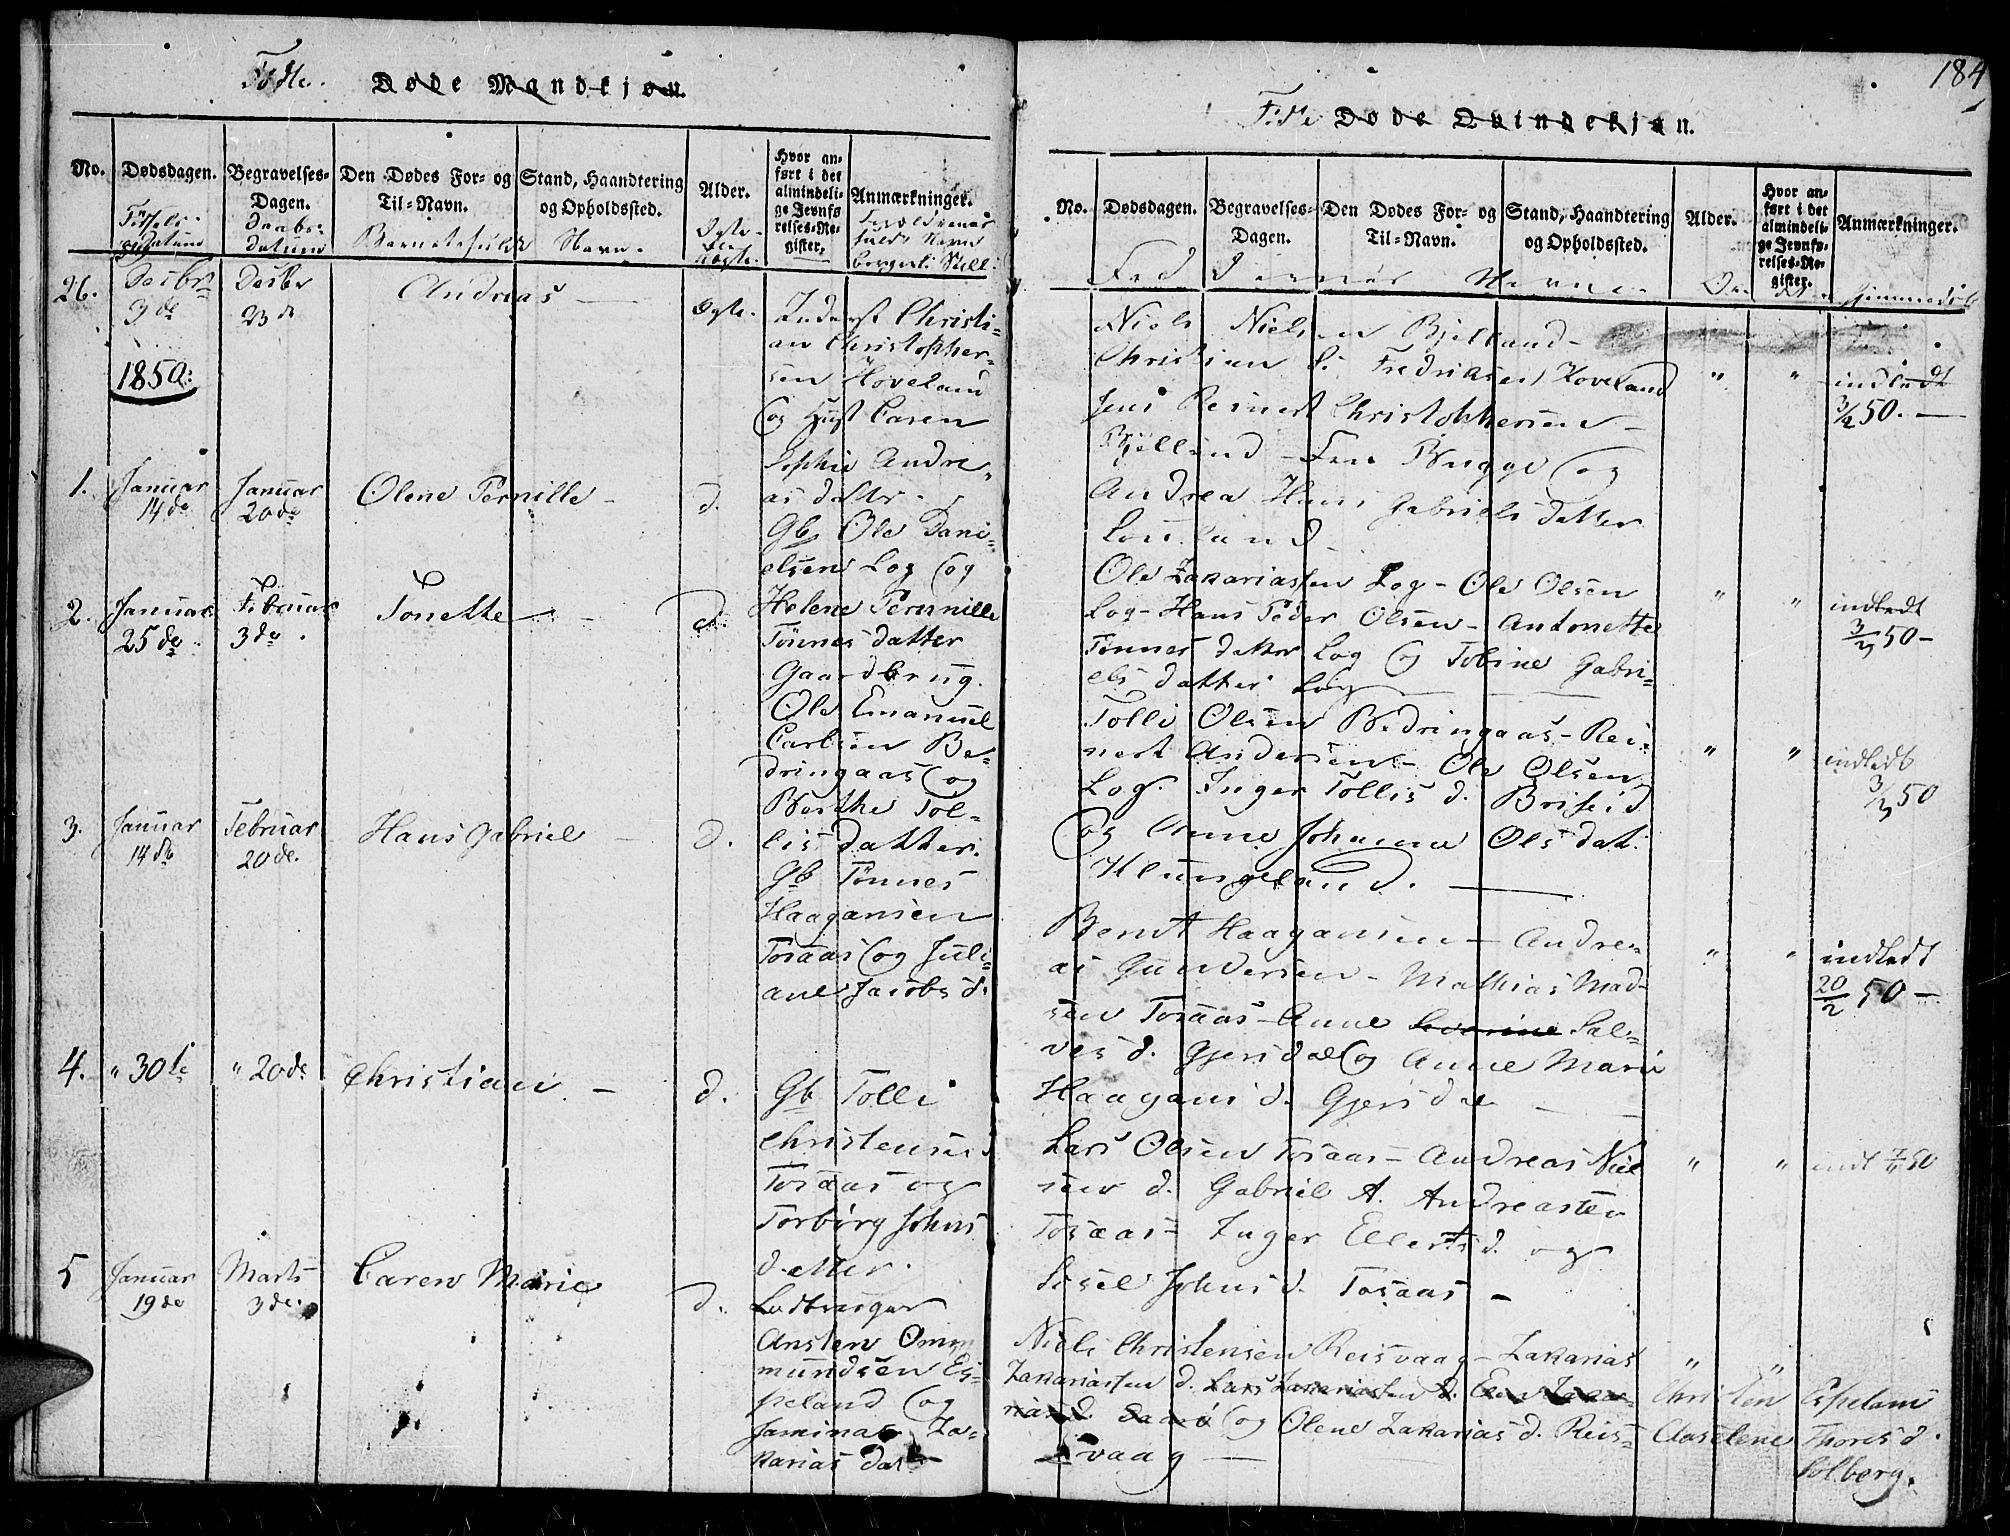 Fødte. Døde Mandkjøn.
No.
Dødsdagen.
Begravelses-
Dagen.
Den Dødes For- og
Til-Navn.
Stand, Haandtering
og Opholdssted.
Alder.
Hvor an-
ført i det
almindeli-
ge Jevnfø
relses-Re-
gister.
Anmærkninger.
Daabs-
datum
Barnets fulde Navn.
26.
Desbr
3de
Desbr
23de
Andreas —
Ægte.
Inderst Christi-
an Christopher-
sen Hoveland
og Hust Caren
Sophie Andre-
as datter.
1850:
1.
Januar
14de
Januar
20de
Olene Pernille -
d.
Gb Ole Dani-
elsen Log og
Helene Pernille
Tönnes datter
2.
Januar
25de
Februar
3de.
Tonette —
d.
Gaardbrug.
Ole Emanuel
Carlsen Be-
dringaas og
Berthe Tol-
lis datter.
3.
Januar
14de
Februar
20de.
Hans Gabriel —
d.
Gb Tönnes
Haagansen
Tosaas og Juli-
ane Jacobs d.
4.
" 30te
" 20de
Christian. —
d.
Gb Tolli
Christensen
Tosaas og
Torborg Johns
datter.
5
Januar
19de
Marts
3de.
Caren Marie
d.
Ledbruger
Ansten Om-
mundsen Es-
peland og
Jamina Za-
karias dat
184
Døde Qvindekjøn.
No.
Dødsdagen.
Begravelses-
Dagen.
Den Dødes For- og
Til-Navn.
Stand, Haandtering
og Opholdssted.
Alder.
Hvor an-
ført i det
almindeli-
ge Jevnfø-
relses-Re-
gister.
Anmærkninger.
Faddernes Navne
Niels Nielsen Bjelland -
Christian S. Fredriksen Hoveland
Jens Reinert Christophersen -
Bjelland - Fru Bugge og
Andrea Hans Gabriels datter
" " indledt
3/2 50. —
Ole Zakariassen Log - Ole Olsen
Log - Hans Peder Olsen - Antonette
Tönnes datter Log og Tobine Gabri-
els datter Log —
" " indledt
3/3 50 -
Tolli Olsen Bedringaas - Rei-
nert Andersen - Ole Olsen
Log. Inger Tollis d. Briseid
og Anne Johanne Ols dat.
Klungeland. —
" " indledt
3/3 50
Bendt Haagansen - Andre-
as Gundersen - Mathias Mad-
sen Tosaas - Anne Severine Sal-
ves d. Gjersdal og Anne Marie
Haagans d. Gjersdal —
" " indledt
20/2 50 —
Lars Olsen Tosaas - Andreas Niel
sen d. Gabriel A. Andreassen
Tosaas - Inger Ellerts d. og
Sisel Johns d. Tosaas -
" "
Niels Christensen Reisvaag - Zakarias
Zakariassen d. Lars Zakariassen d.
og Olene Zakarias d. Reis-
vaag —
" "
Christen Espeland
Aaselene Thores d.
Solberg.